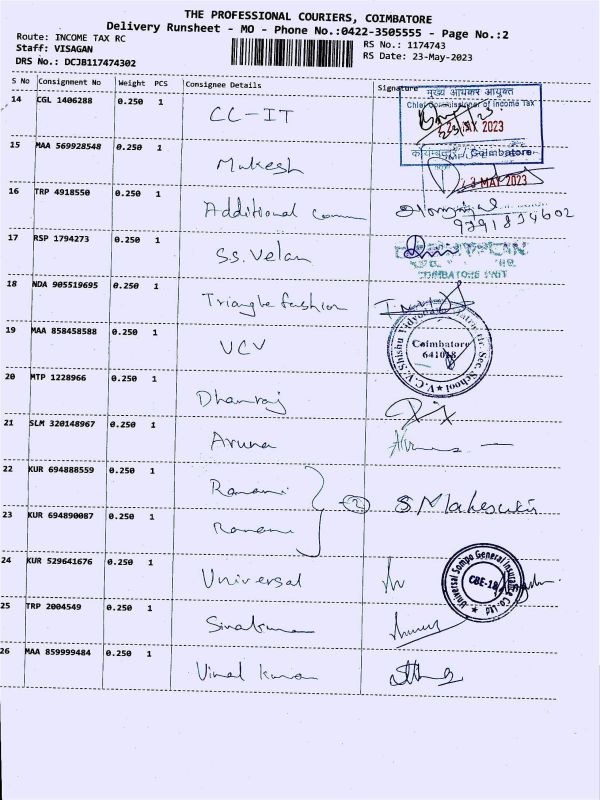 THE PROFESSIONAL COURIERS, COIMBATORE
Delivery Runsheet - MO - Phone No.:0422-3505555 - Page No.:2
Route: INCOME TAX RC
RS No.: 1174743
Staff: VISAGAN
RS Date: 23-May-2023
DRS No.: DCJB117474302
S No Consignment No Weight PCS Consignee Details Signature
मुख्य आयकर आयुक्त
Chief Commissioner of Income Tax
14 CGL 1406288 0.250 1 CC-IT
MAY 2023
कोयम्बत्तूर / Coimbatore
15 MAA 569928548 0.250 1 Mukesh
MAY 2023
16 TRP 4918550 0.250 1 Additional comm
9791834602
17 RSP 1794273 0.250 1 SS. Velan
COIMBATORE UNIT
18 NDA 905519695 0.250 1 Triangle fashion
19 MAA 858458588 0.250 1 VCV
V.C.V. Shishu Vidyodaya Matric Hr. Sec. School
Coimbatore
20 MTP 1228966 0.250 1 Dhanraj
21 SLM 320148967 0.250 1 Aruna
22 KUR 694888559 0.250 1 Ramani
2
23 KUR 694890087 0.250 1 Ramani
24 KUR 529641676 0.250 1 Universal
Universal Sompo General Insurance Co. Ltd
CBE-18
25 TRP 2004549 0.250 1 Sivakumar
26 MAA 859999484 0.250 1 Vimal Kumar